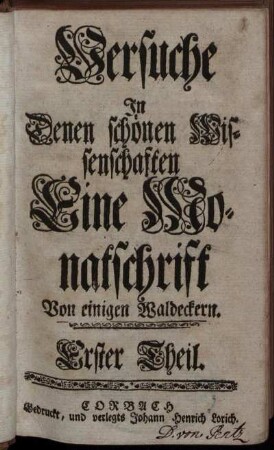 Versuche
In
Denen schönen Wis-
senschaften
Eine Mo-
natschrift
Von einigen Waldeckern.
Erster Theil.
CORBACH
Gedruckt, und verlegts Johann Henrich Lorich.
D. von